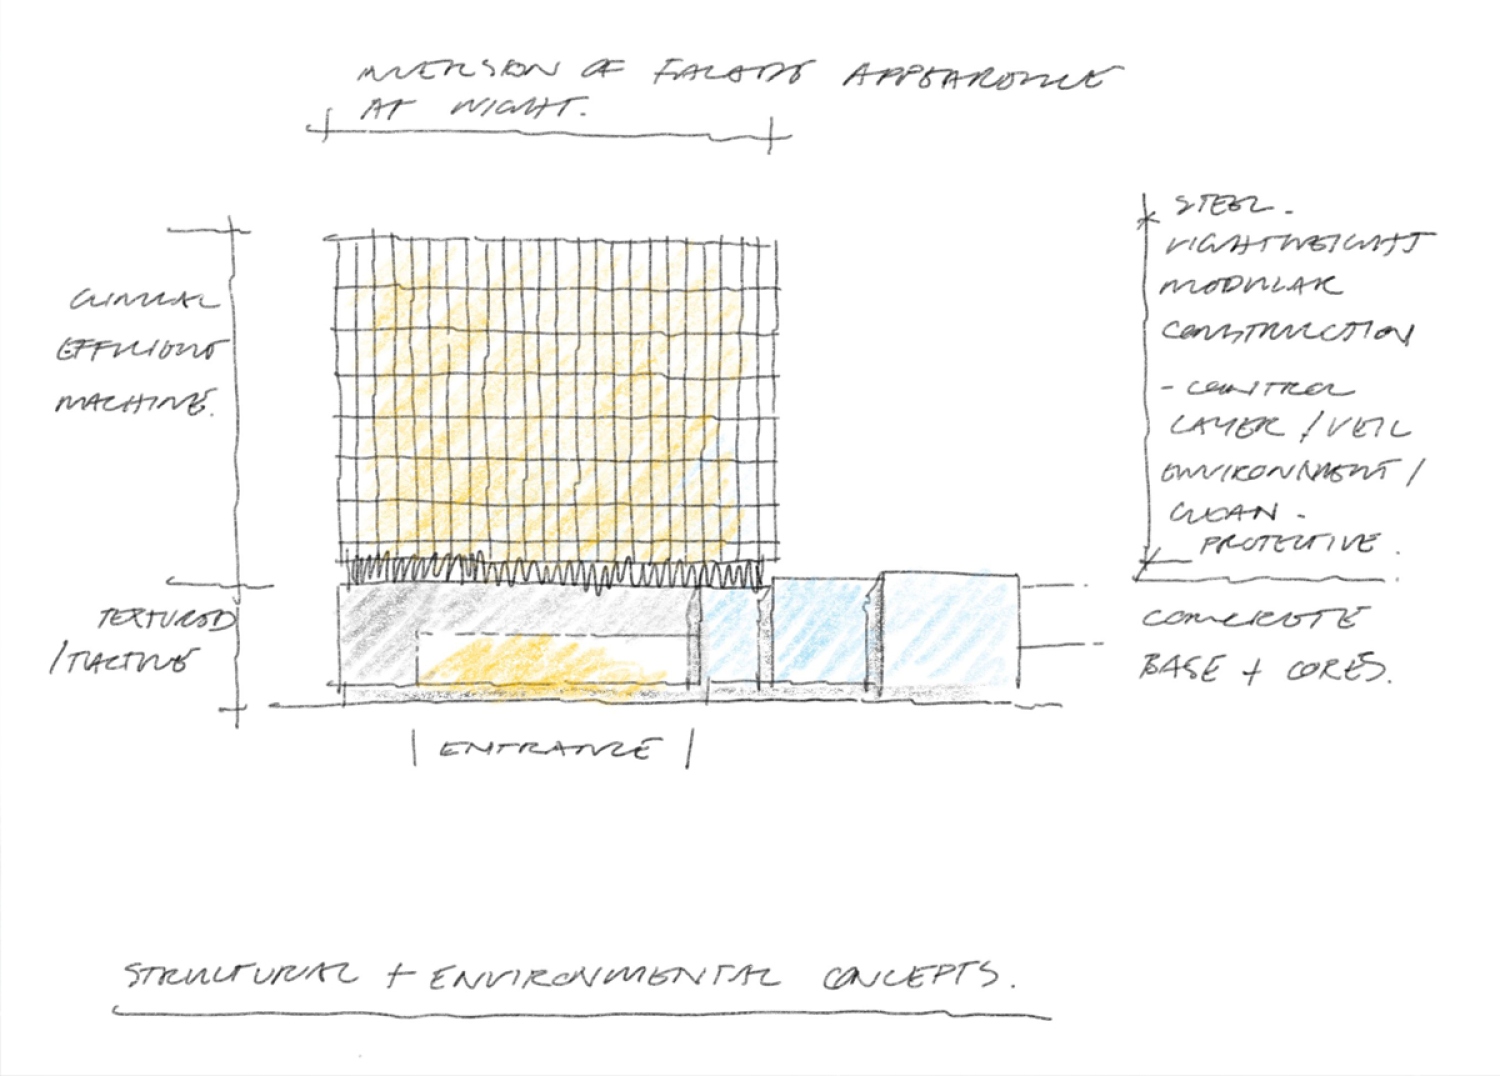 INVERSION OF FACADE APPEARANCE
AT NIGHT.
CLINICAL
EFFICIENT
MACHINE.
TEXTURED
/TACTILE
STEEL -
LIGHTWEIGHT
MODULAR
CONSTRUCTION
- CONTROL
LAYER / VEIL
ENVIRONMENT /
CLEAN -
PROTECTIVE.
CONCRETE
BASE + CORES.
| ENTRANCE |
STRUCTURAL + ENVIRONMENTAL CONCEPTS.